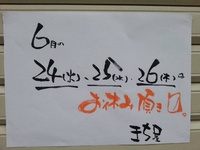 6月の
24(水)、25(木)、26(金)は
お休み頂きます。